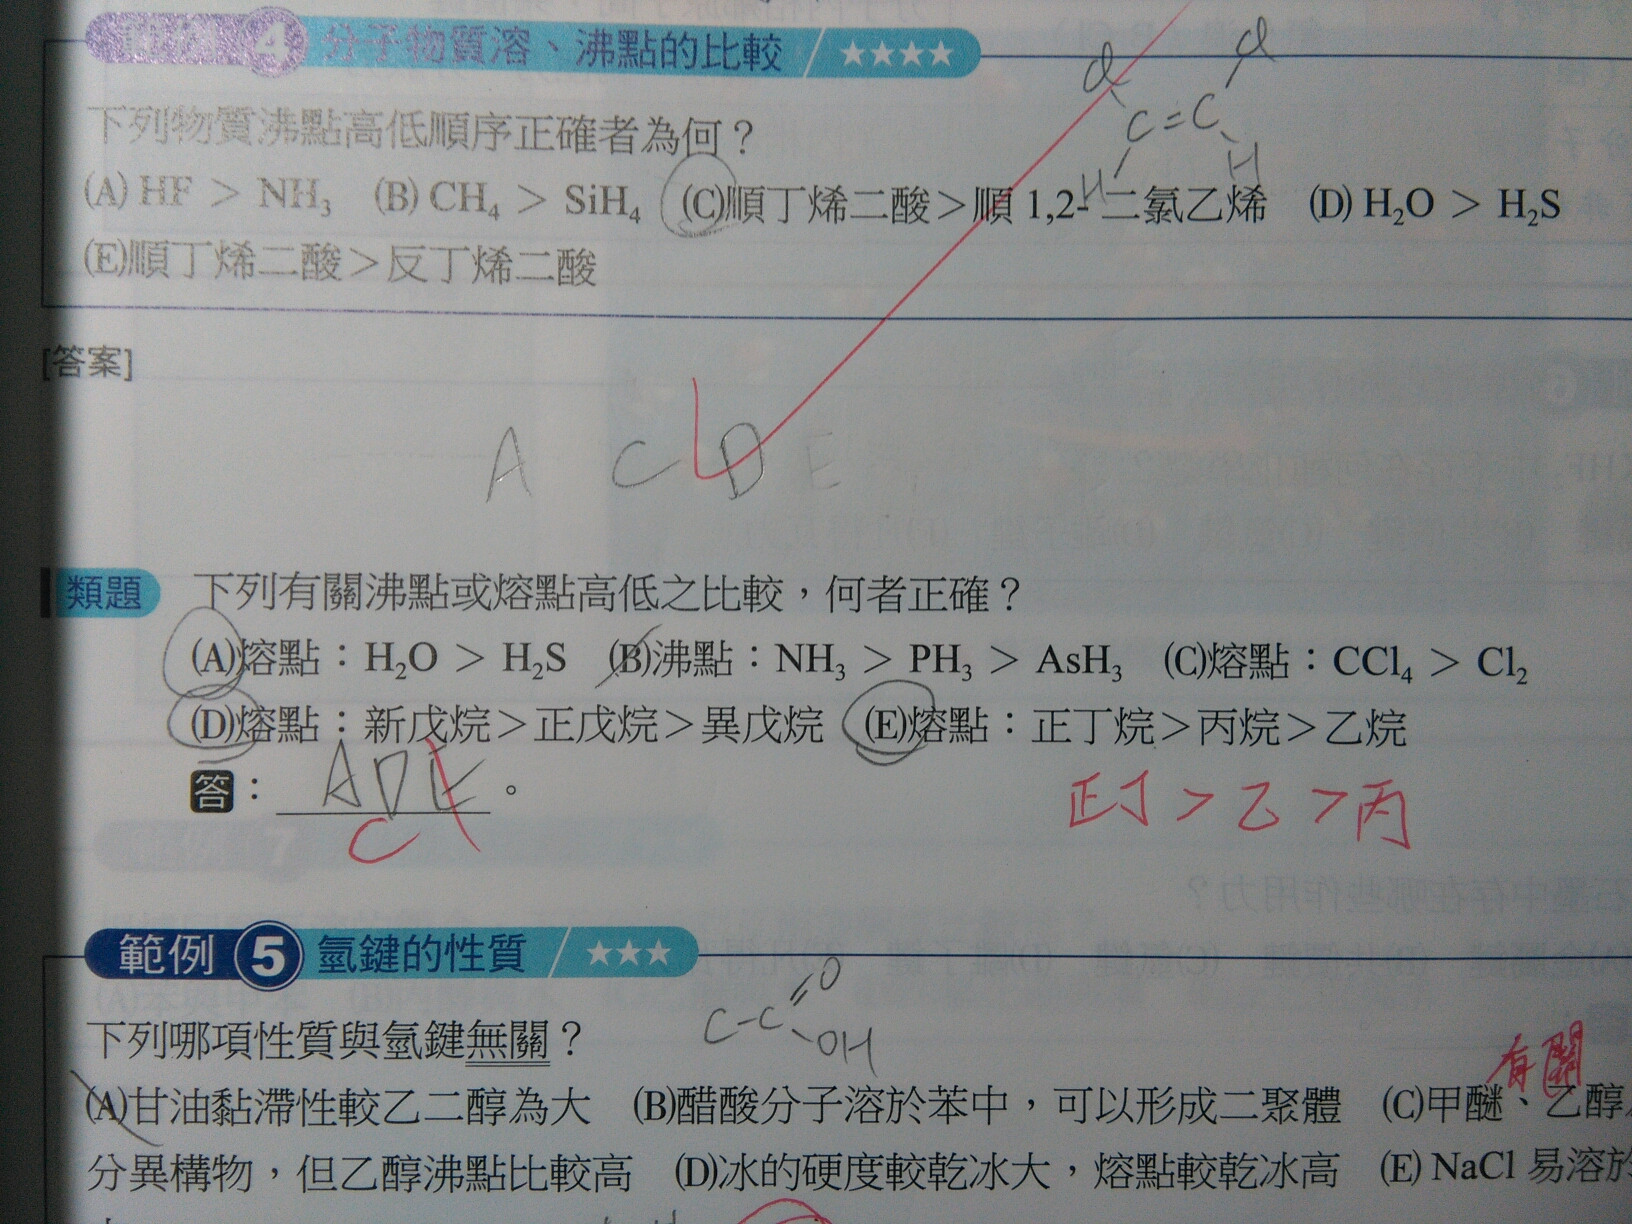 範例 4 分子物質溶、沸點的比較 / ★★★★
下列物質沸點高低順序正確者為何？
(A) HF > NH₃ (B) CH₄ > SiH₄ (C)順丁烯二酸>順 1,2- 二氯乙烯 (D) H₂O > H₂S
(E)順丁烯二酸>反丁烯二酸
Cl Cl
C=C
H H
[答案]
A C D E
類題 下列有關沸點或熔點高低之比較，何者正確？
(A)熔點：H₂O > H₂S (B)沸點：NH₃ > PH₃ > AsH₃ (C)熔點：CCl₄ > Cl₂
(D)熔點：新戊烷>正戊烷>異戊烷 (E)熔點：正丁烷>丙烷>乙烷
答：ADE。
C
正丁>乙>丙
範例 5 氫鍵的性質 / ★★★
C-C=O
OH
下列哪項性質與氫鍵無關？
有關
(A)甘油黏滯性較乙二醇為大 (B)醋酸分子溶於苯中，可以形成二聚體 (C)甲醚、乙醇
分異構物，但乙醇沸點比較高 (D)冰的硬度較乾冰大，熔點較乾冰高 (E) NaCl 易溶於